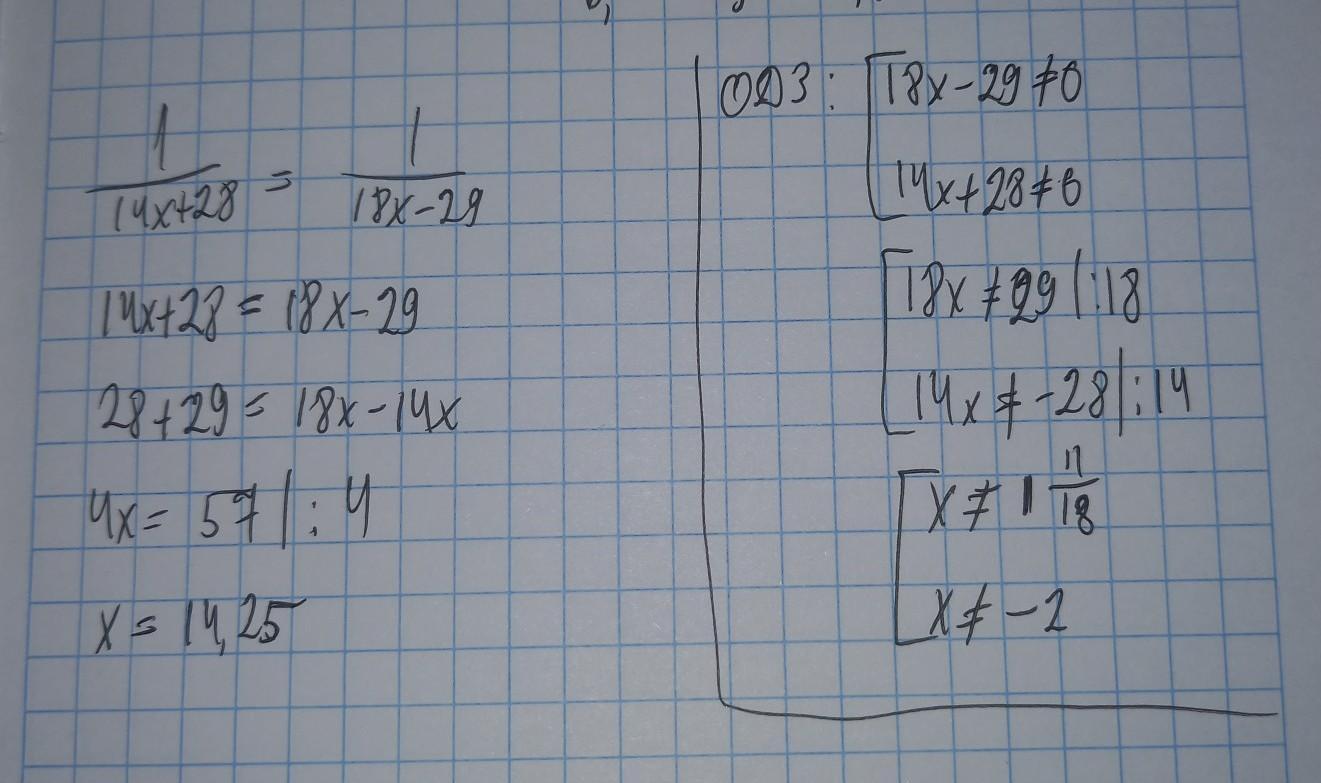 1/(14x+28) = 1/(18x-29)
14x+28 = 18x-29
28+29 = 18x-14x
4x = 57 |: 4
x = 14,25
ОДЗ: [18x-29≠0
14x+28≠0
[18x≠29 |:18
14x≠-28 |:14
[x≠1 11/18
x≠-2